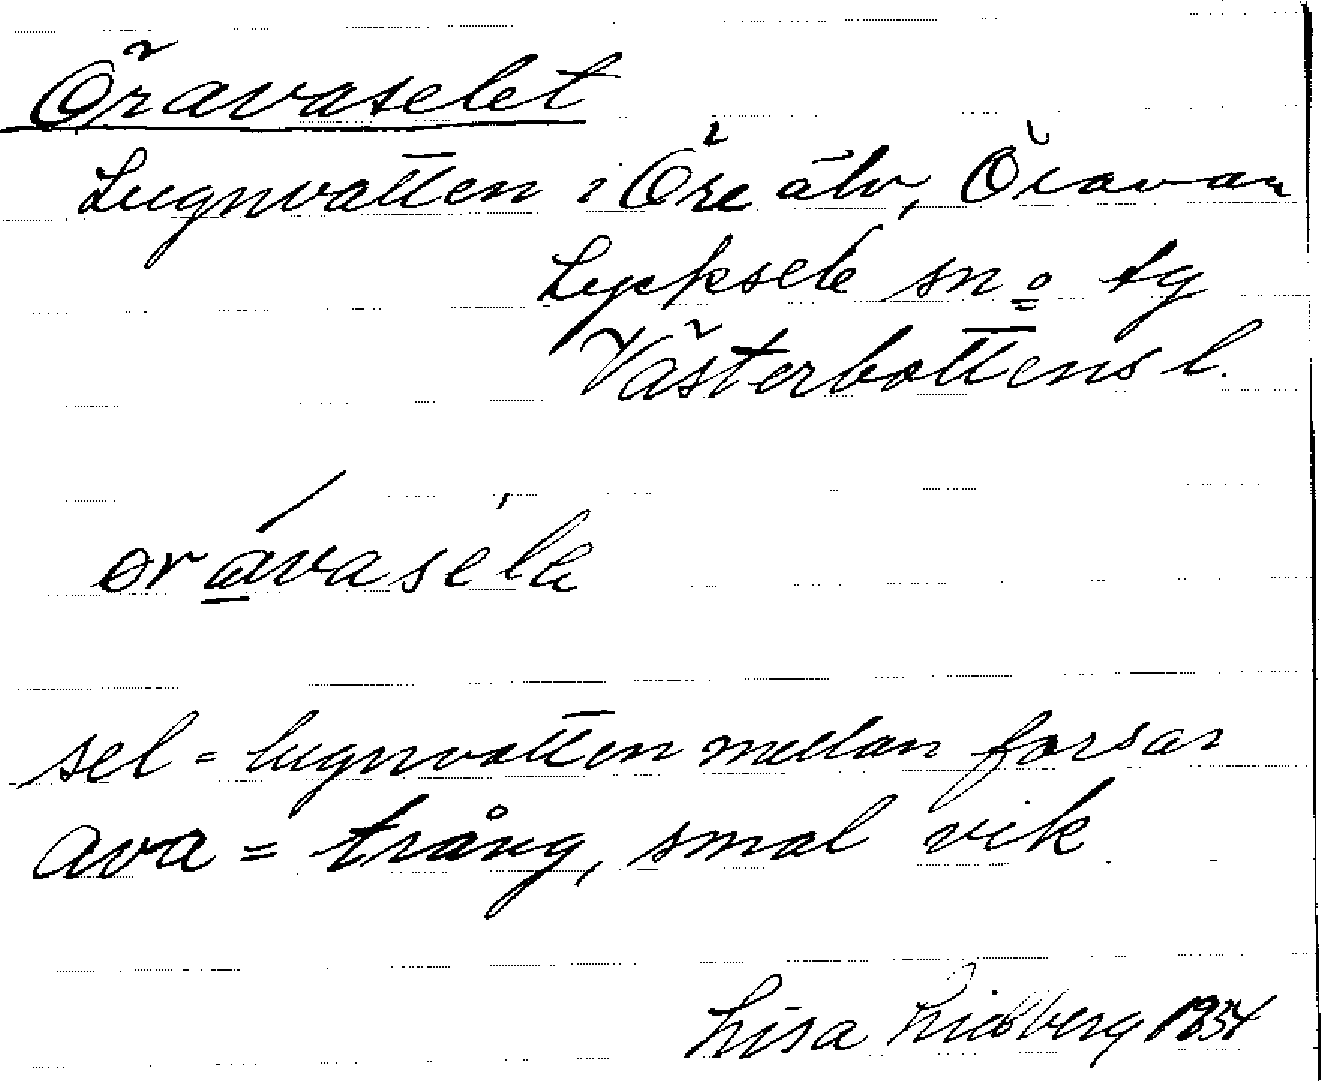 Öravaselet
Lugnvatten i Öre älv, Öravan
Lycksele sn o tg
Västerbottens l.
öravasele
sel = lugnvatten mellan forsar
ava = trång, smal vik
Lisa Lidberg 1934